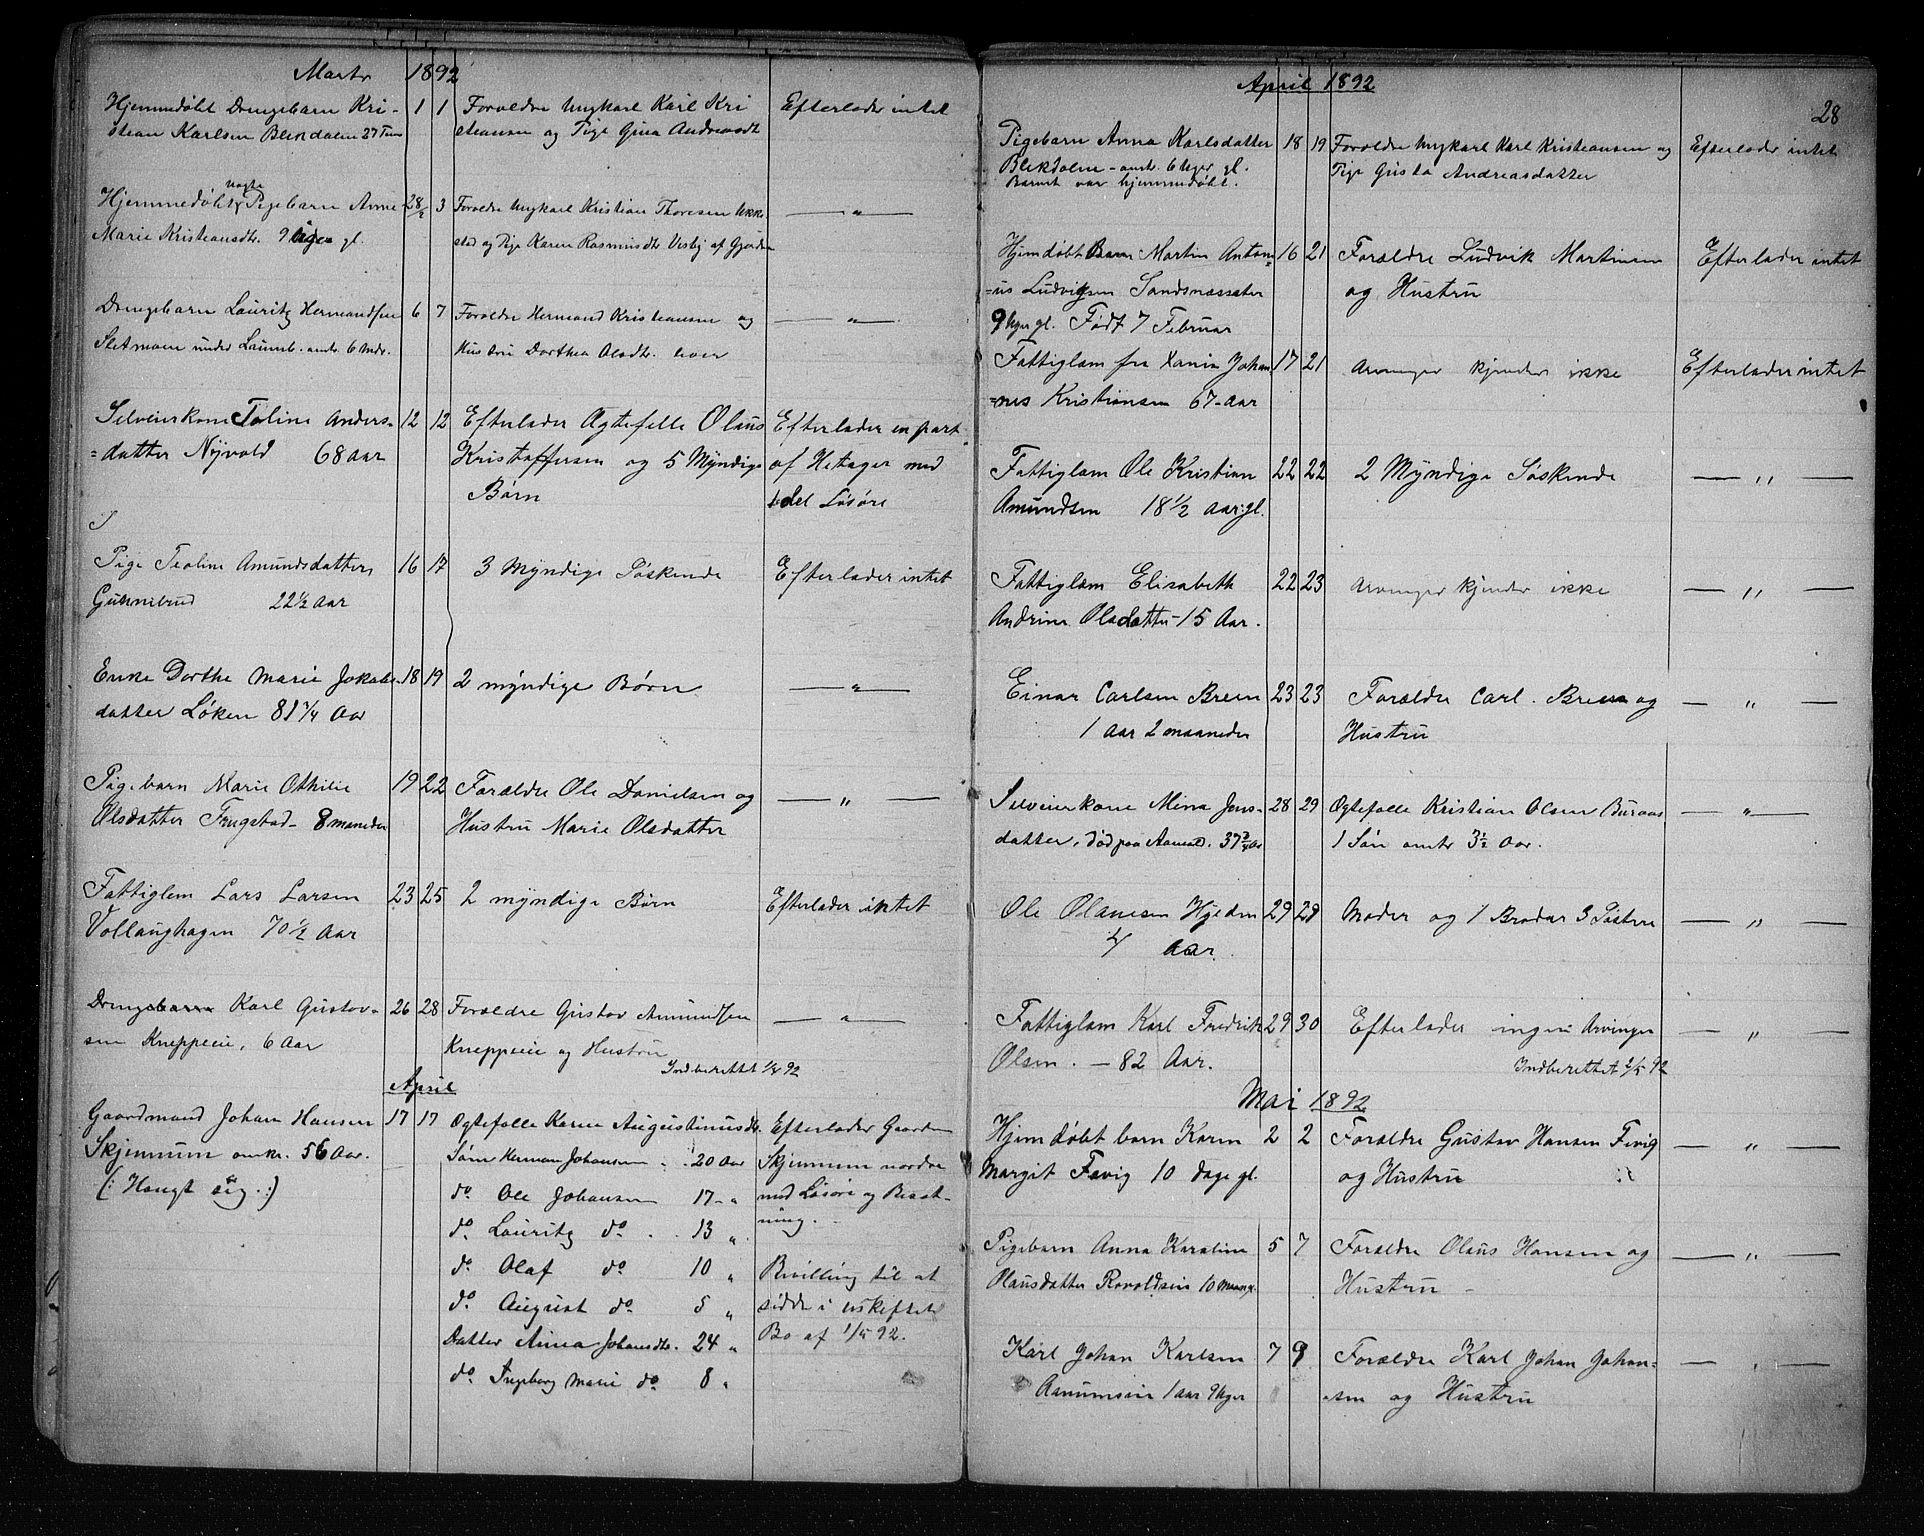 Marts 1892
Hjemmedøbt Drengebarn Kri- 1 1 Forældre Ungkarl Karl Kri Efterlader intet
stian Karlsen Blekdalen 27 Tim steansen og Pige Gina Andreasdt
uægte
Hjemmedøbt Pigebarn Anne 28/2 3 Forældre Ungkarl Kristian Thoresen — " —
Marie Kristeansdt. 9 Uger gl. og Pige Karen Rasmusdt. Vesby af
Drengebarn Lauritz Hermandsen 6 7 Forældre Hermand Kristeansen og — " —
Sletmoen under omtr. 6 Mdr. Hustru Dorthea Olsdt. hver
Selveierkone Toline Anders- 12 12 Efterlader Ægtefelle Olaus Efterlader en part
=datter Nyvold 68 Aar Kristoffersen og 5 Myndige af Hstager med
Børn del Løsøre
Pige Teoline Amundsdatter 16 17 3 Myndige Søskende Efterlader intet
Gunnebrud 22 1/2 Aar
Enke Dorthe Marie Jakobs- 18 19 2 myndige Børn — " —
datter Løken 81 3/4 Aar
Pigebarn Marie Othilie 19 22 Forældre Ole Danielsen og — " —
Olsdatter Frugstad - 8 maneder Hustru Marie Olsdatter
Fattiglem Lars Larsen 23 25 2 myndige Børn Efterlader intet
Vollaughagen 70 1/2 Aar
Drengebarn Karl Gustav- 26 28 Forældre Gustav Amundsen — " —
sen Kneppeie, 6 Aar Kneppeie og Hustru
Indberettet 1/4 92
April
Gaardmand Johan Hansen 17 17 Ægtefelle Karen Augustinusdt. Efterlader Gaarden
Skjennum omkr. 56 Aar. Søn Herman Johansen . . 20 Aar Skjennum nordre
(: Hængt sig. :) do. Ole Johansen 17 - " med Løsøre og Besæt-
do. Lauritz do. . . 13 " ning. -
do. Olaf do. 10 " Bevilling til at
do. August do. 5 " sidde i uskiftet
Datter Anna Johansdt. 24 " Bo af 1/5 92.
do. Ingeborg Marie do. 8 "
April 1892
28
Pigebarn Anna Karlsdatter 18 19 Forældre Ungkarl Karl Kristeansen og Efterlader intet
Blekdalen - omtr. 6 Uger gl. Pige Gusta Andreasdatter
Barnet var hjemmedøbt.
Hjemdøbt Barn Martin Anton= 16 21 Forældre Ludvik Martinsen Efterlader intet
=us Ludvigsen Sandsnæssæter og Hustru
9 Uger gl. Født 7 Februar
Fattiglem fra Johan 17 21 Arvinger kjendes ikke Efterlader intet
=nes Kristiansen 67 - Aar
Fattiglem Ole Kristian 22 22 2 Myndige Søskende — " —
Amundsen 18 1/2 Aar. gl.
Fattiglem Elisabeth 22 23 Arvinger kjendes ikke — " —
Andrine Olsdatter - 15 Aar.
Einar Carlsen Breen 23 23 Forældre Carl. Breen og — " —
1 Aar 2 maaneder Hustru
Selveierkone Mina Jens- 28 29 Ægtefelle Kristian Olsen Buraas — " —
datter, død paa 37 3/4 Aar 1 Søn omtr 3 1/2 Aar.
Ole Olansen Hjeden 29 29 Moder og 1 Broder 3 Søstre — " —
4 Aar.
Fattiglem Karl Fredrik 29 30 Efterlader ingen Arvinger — " —
Olsen. - 82 Aar. Indberettet 2/5 92
Mai 1892
Hjemdøbt barn Karen 2 2 Forældre Gustav Hansen Fevig — " —
Margit Fevig 10 dage gl. og Hustru
Pigebarn Anna Karoline 5 7 Forældre Olaus Hansen og — " —
Olausdatter 10 Hustru -
Karl Johan Karlsen 7 9 Forældre Karl Johan Johan- — " —
1 aar 9 Uger -sen og Hustru